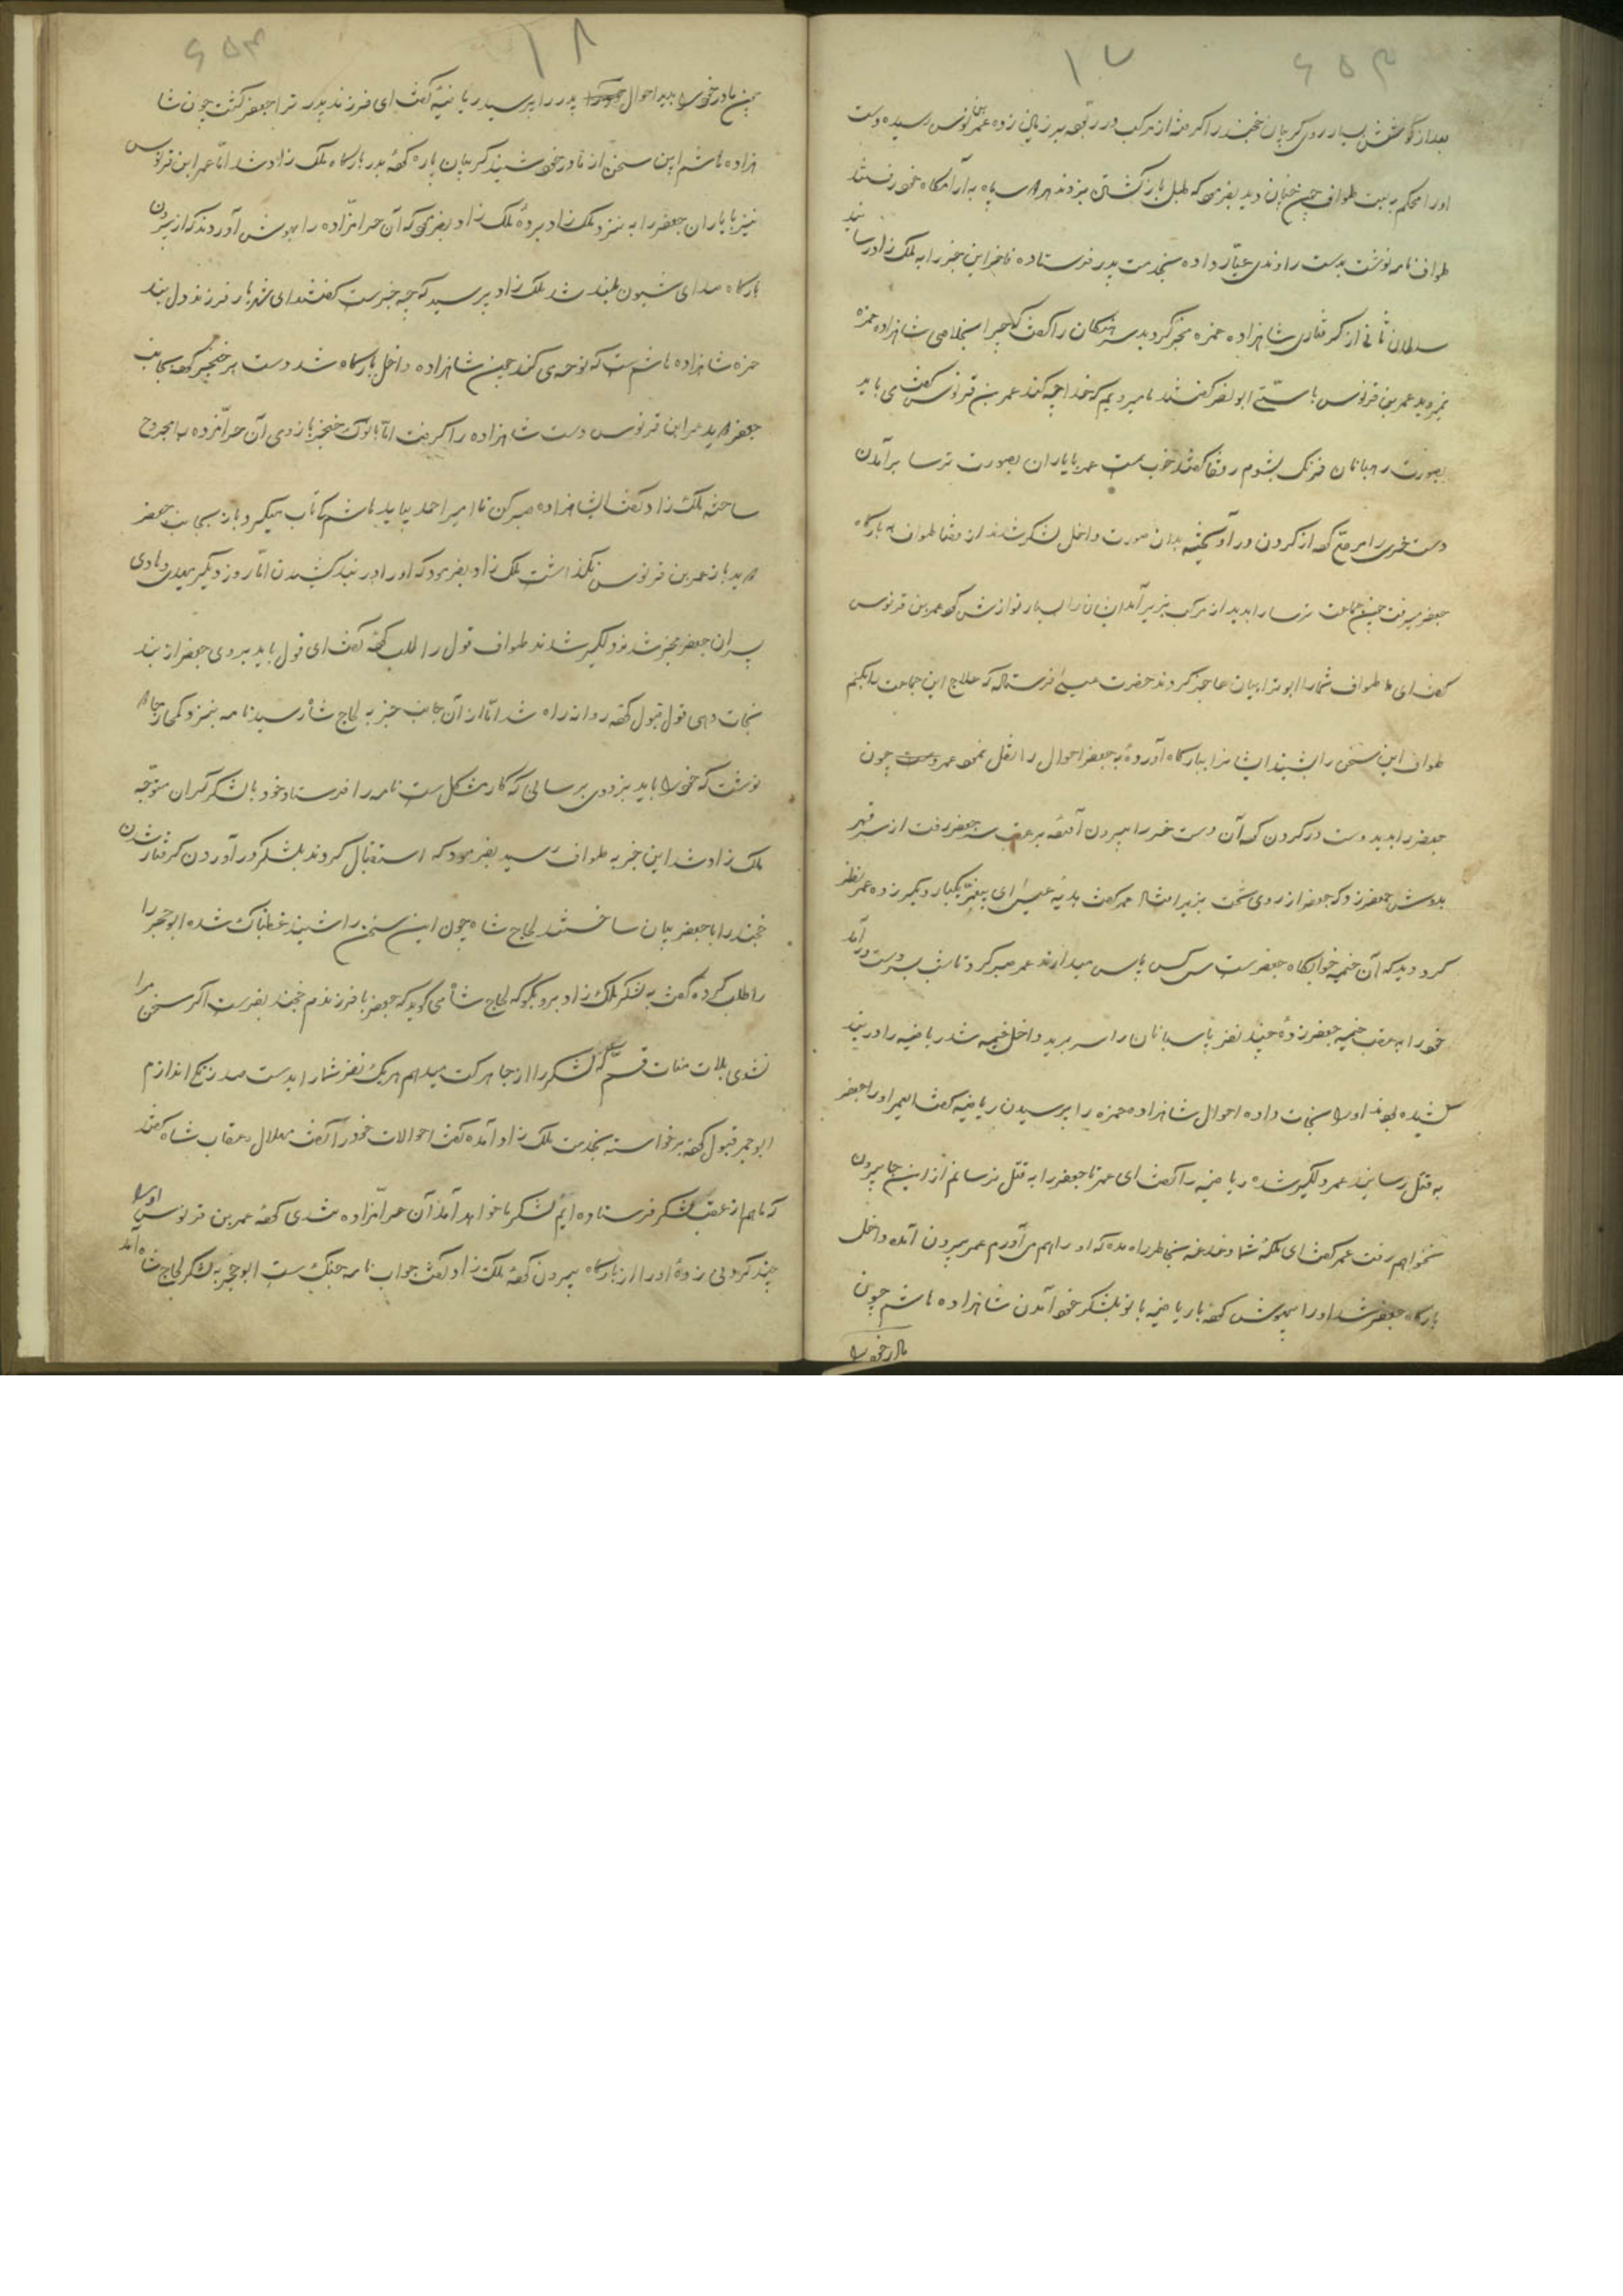 ۱۷ ۶۵۳
بعد از کوشش بسیار روی گریبان خجند را گرفته از مرکب در ربوده بر زمین زده عمر بن قرنوس رسیده دست
اورا محکم به بست طواف چنین دید بفرمود که طبل بازگشتن بزدند هر دو سپاه به آرامگاه خود رفتند
طواف نامه نوشت بدست راوندی عیار داده بخدمت پدر فرستاده تا خبر این خبر را به ملک زاد رسانید
سلطان ثانی از گرفتاری شاهزاده حمزه مخبر گردید سرهنگان را گفت که چرا بخلاصی شاهزاده حمزه
نمیروید عمر بن قرنوس با ابو نصر گفتند ما میرویم که خدا چه کند عمر بن قرنوس گفت می باید
بصورت رهبانان فرنگ بشوم رفقا گفتند خوب است عمر با یاران بصورت ترسا برآمدن
دست خری را مرصع کرده از گردن در آویخته بدان صورت داخل لشکر شدند از قضا طواف به بارگاه
جعفر میرفت چون جماعت ترسا را بدید از مرکب بزیر آمد ایشان را بسیار نوازش کرد عمر بن قرنوس
گفت ای طواف شما را ابو ترابیان عاجز کردند حضرت عیسی فرستاد که علاج این جماعت را بکنیم
طواف این سخن را شنید ایشانرا ببارگاه آورده به جعفر احوال را نقل نمود عمر چون
جعفر را بدید دست در گردن کرد آن دست خر را بیرون آورده بر عقب سر جعفر رفت از سر قهر
بدوش جعفر زد که جعفر از روی تخت بزیر افتاد عمر گفت بدیه عیسی ای پیغمبر یکبار دیگر زده عمر نظر
کرد دید که آن خیمه خوابگاه جعفرست سی کس پاس میدارند عمر صبر کرد تا شب بر دست در آمد
خود را به عقب خیمه جعفر زده چند نفر پاسبانان را سر برید داخل خیمه شد ریاضیه را در بند
کشیده بودند او را نجات داده احوال شاهزاده حمزه را پرسیدن ریاضیه گفت ای عمر او را جعفر
به قتل رسانید عمر دلگیر شده ریاضیه را گفت ای عمر تا جعفر را به قتل نرسانم از این جا بیرون
نخواهم رفت عمر گفت ای ملکه شما دغدغه بخاطر راه مده که او را هم می آورم عمر بیرون آمده داخل
بارگاه جعفر شد او را بیهوش کرده با ریاضیه بانو بلشکر خود آمدن شاهزاده هاشم چون
مادر خود را
۱۸ ۶۵۴
چون مادر خود را بدید احوال پدر را پرسید ریاضیه گفت ای فرزند پدر ترا جعفر کشت چون شا
هزاده هاشم این سخن از مادر خود شنید گریبان پاره کرده بدر بارگاه ملک زاد شد اما عمر ابن قرنوس
نیز با یاران جعفر را به نزد ملک زاد برده ملک زاد بفرمود که آن حرامزاده را بهوش آوردند که از بیرون
بارگاه صدای شیون بلند شد ملک زاد پرسید که چه خبرست گفتند ای شهریار فرزند دل بند
حمزه شاهزاده هاشم ست که نوحه می کند چون شاهزاده داخل بارگاه شد دست بر خنجر کرده بجانب
جعفر دوید عمر ابن قرنوس دست شاهزاده را گرفت اما نوک خنجر بازوی آن حرامزده را مجروح
ساخت ملک زاد گفت ای شاهزاده صبر کن تا امیر احمد بیاید هاشم تاب نیاورد باز بجانب جعفر
دوید باز عمر بن قرنوس نگذاشت ملک زاد بفرمود که او را در بند کشیدن اما روز دیگر
پسران جعفر مخبر شد بود لگیر شدند طواف قول را طلب کرده گفت ای قول باید بروی جعفر از بند
نجات دهی قول قبول کرده روانه راه شد اما از آن جانب خبر به لجاج شاه رسید نامه بنزد
نوشت که خود را باید بزودی برسانی که کار مشکل ست نامه را فرستاد خود با لشکر گران متوجه
ملک زاد شد این خبر به طواف رسید بفرمود که استقبال کردند بلشکر در آوردن گرفتار شدن
خجند را با جعفر بیان ساختند لجاج شاه چون این سخن را شنید غضبناک شده ابو حجر را
را طلب کرده گفت به لشکر ملک زاد برو بگو که لجاج شاه می گوید که جعفر با فرزندم خجند بفرست اگر سخن مرا
نشوی بلات منات قسم که لشکر را از جا حرکت میدهم هر یک نفر شما را بدست صد زنگی اندازم
ابو حجر قبول کرده برخواسته بخدمت ملک زاد آمده گفت احوالات خود را گفت هلال عقاب شاه گفتند
که ما هم از عقب لشکر فرستاده ایم لشکر ما خواهد آمد آن حرامزاده تندی کرده عمر بن قرنوس او را
چند گردنی زده او را از بارگاه بیرون کرده ملک زاد گفت جواب نامه جنگ ست ابو حجر به لشکر لجاج شاه آمد